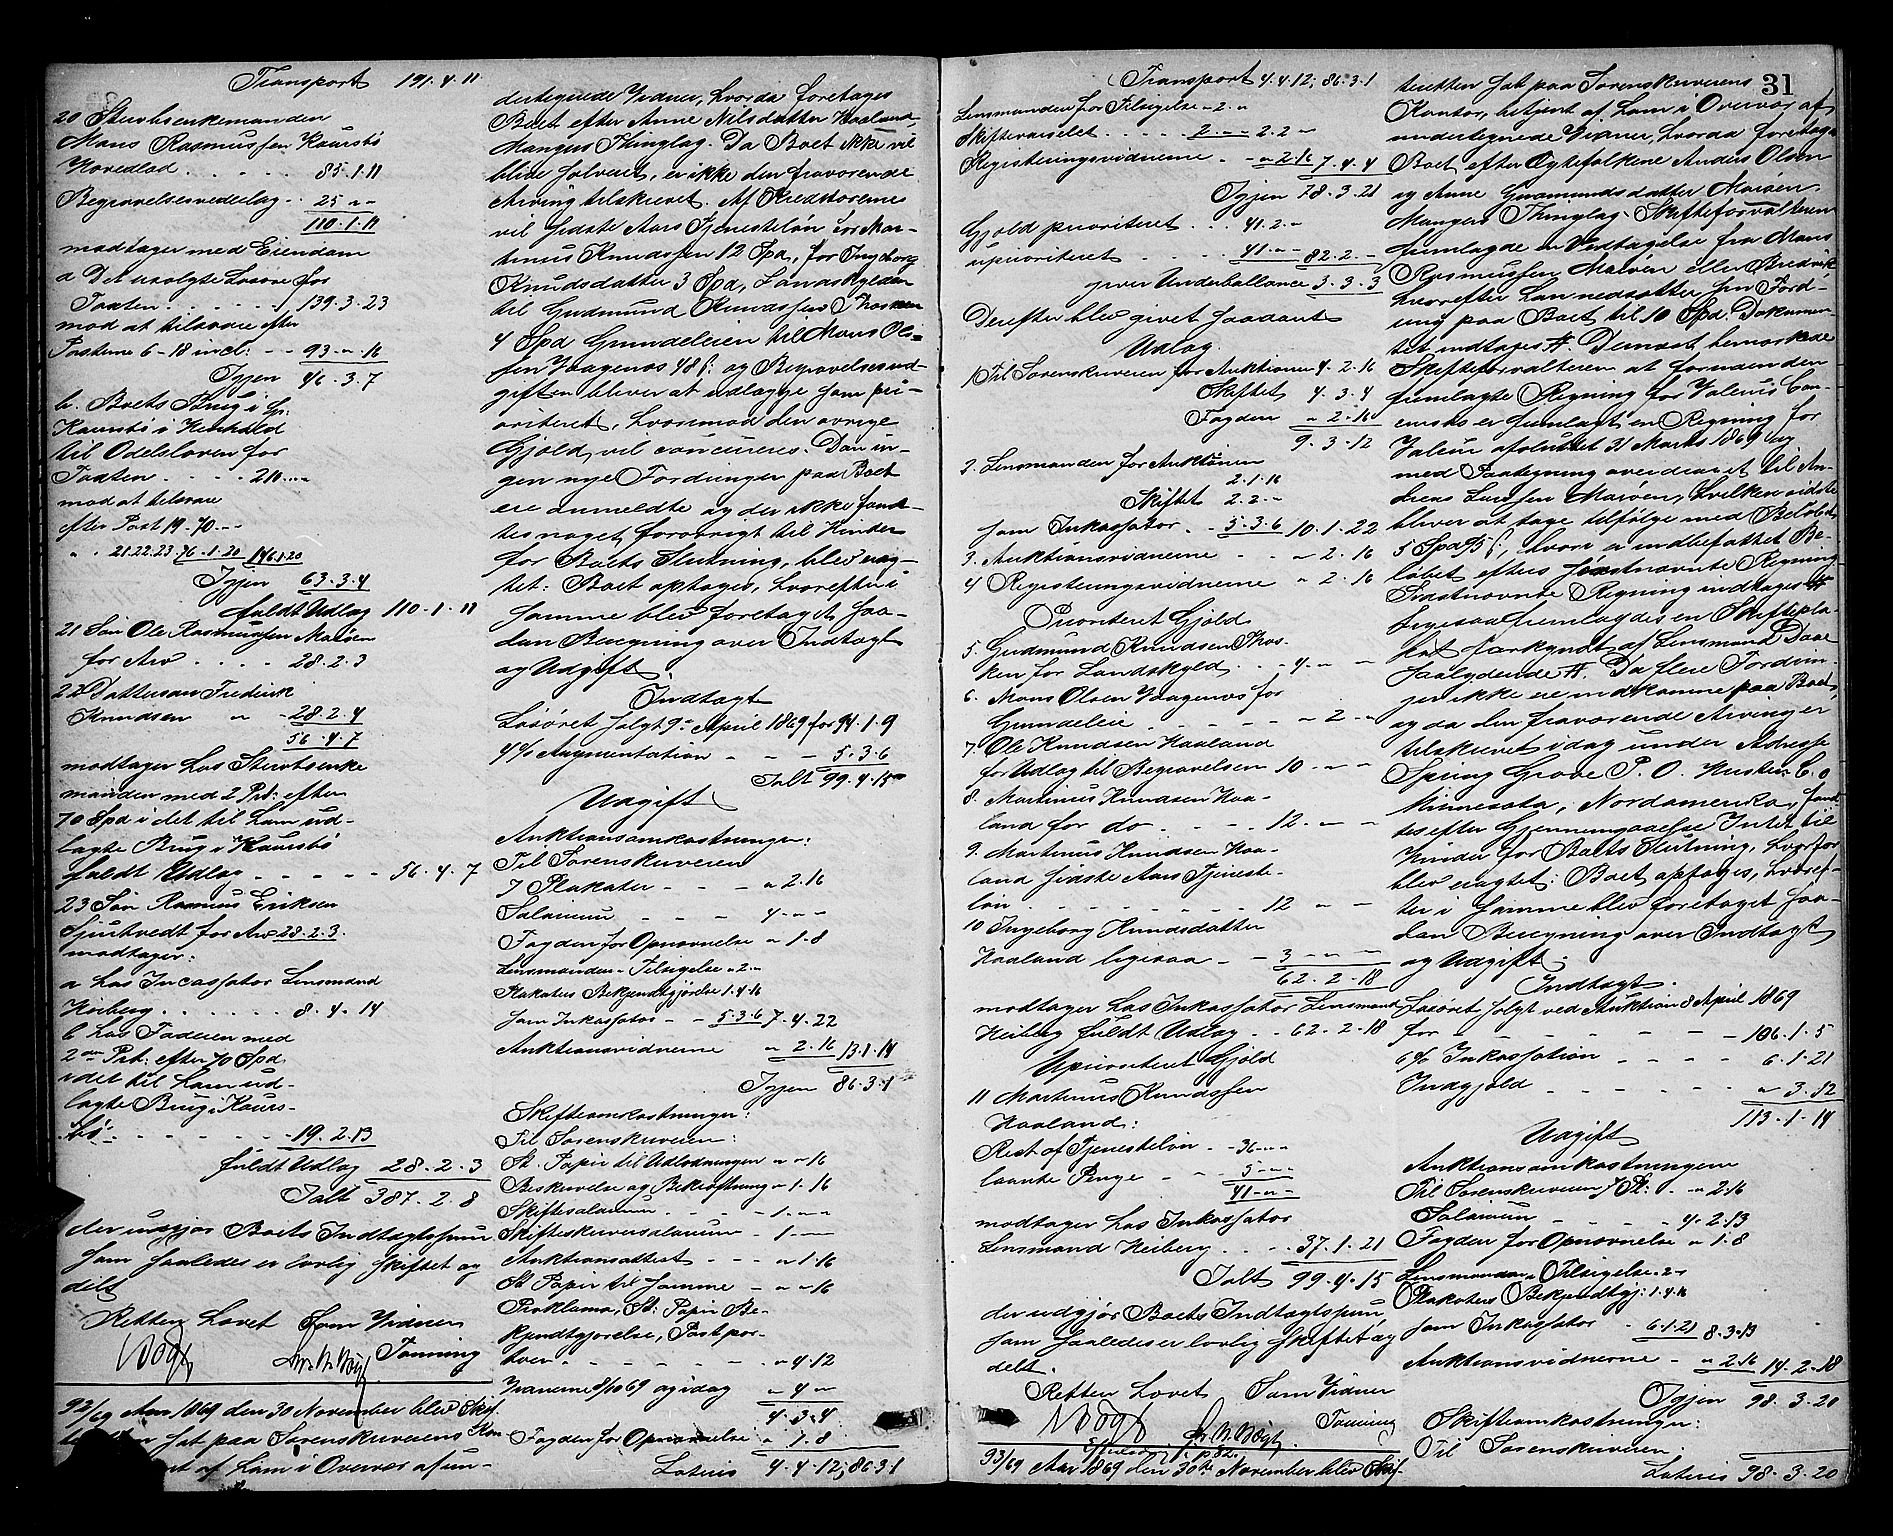 Transport 191.4.11
20 Sterbsenkemanden
Mons Rasmussen Kaursbø
Hovedlod . . . . . 85.1.11
Begravelsesvederlag . 25 " "
110.1.11
modtager med Eiendom
a Det usolgte Løsøre for
Taxten . . . . . 139.3.23
mod at tilsvare efter
Posterne 6-18 incl: - - 93 " 16
Igjen 46.3.7
b. Boets Brug i Gr:
Kaursbø i Henhold
til Odelsloven for
Taxten . . . . 210 " "
mod at tilsvare
efter Post 19.70 - -
" " 21.22.23.76.1.20 146.1.20
Igjen 63.3.4
fuldt Udlæg 110.1.11
21 Søn Ole Rasmussen Marøen
for Arv . . . . 28.2.3
22 Dattersøn Fredrik
Knudsen " - 28.2.4
56.4.7
modtager hos Sterbsenke
manden med 2 Prt: efter
70 Spd i det til ham ud-
lagte Brug i Kaursbø
fuldt Udlæg - - - - - 56.4.7
23 Søn Rasmus Eriksen
Sjurtvedt for Arv 28.2.3.
modtager:
a hos Incassator Lensmand
Heiberg . . . . . . 8.4.14
b hos Faderen med
2 Prt: efter 70 Spd
i det til ham ud-
lagte Brug i Kaurs-
bø - - - - - - 19.2.13
fuldt Udlæg 28.2.3
Ialt 387.2.8
der udgjør Boets Indtægtssum
som saaledes er lovlig skiftet og
delt
Retten hævet Som Vidner
Vogt Tønning
92/69 Aar 1869 den 30 November blev Skif-
sat paa Sorenskriverens Kon
af ham i Overvær af un-
dertegnede Vidner, hvorda foretoges
Boet efter Anne Nilsdatter Haaland,
Mangers Thinglag. Da Boet ikke vil
blive solvent, er ikke den fraværende
Arving tilskrevet. Af Kreditorerne
vil sidste Aars Tjenesteløn for Mar-
tinus Knudssen 12 Spd, for Ingeborg
Knudsdatter 3 Spd, Landskylden
til Gudmund Knudssen Thosken
4 Spd Grundeleien til Mons Ol-
sen Vaagenes 48 s: og Begravelsesud-
giften bliver at udlægge som pri-
oriteret, hvorimod den øvrige
Gjeld vil concurrere. Da in-
gen nye Fordringer paa Boet
ere anmeldte og der ikke fand-
tes noget forøvrigt til Hinder
for Boets Slutning, blev eag-
tet: Boet optages, hvorefter i
samme blev foretaget saa-
dan Beregning over Indtægt
og Udgift.
Indtægt
Løsøret solgt 9de April 1869 for 94.1.9
4 % Augmentation - - - 5.3.6
Ialt 99.4.15
Udgift
Auktionsomkostninger:
Til Sorenskriveren
7 Plakater - - - " 2.16
Salarium - - - - 4 " "
Fogden for Opnævnelse " 1.8
Lensmanden - Tilsigelse " 2 "
Plakaters Bekjendtgjørelse 1.4.16
som Inkassator - - 5.3.6 7.4.22
Auktionsvidnerne " 2.16 13.1.14
Igjen 86.3.1
Skifteomkostninger:
Til Sorenskriveren:
St. Papir til Udlodningen " " 16
Beskrivelse og Bekræftning " 1.16
Skiftesalarium . . . . 1 " "
Skifteskriversalarium - 1 " "
Auktionsattest - - - " 1.16
St. Papir til samme - " " 16
Proklama, St: Papir Be-
kjendtgjørelse, Postpor-
toer - - - - - - " 4.12
Turene 8/10 69 og idag " 4 "
4.3.4
Fogden for Opnævnelse " 1.8
Lateris 4.4.12; 86.3.1
31
Transport 4.4.12; 86.3.1
Lensmanden for Tilsigelse " 2 "
Skiftevarselet . . . . 2 " " 2.2 "
Registeringsvidnerne . - " 2.16 7.4.4
Igjen 78.3.21
Gjeld prioriteret . . . 41.2 "
uprioriteret . . . . 41 " " 82.2 "
giver Underballance 3.3.3
Derefter blev givet saadant
Udlæg.
1 Til Sorenskriveren for Auktionen 4.2.16
Skiftet 4.3.4
Fogden " 2.16
9.3.12
2. Lensmanden for Auktionen
2.1.16
Skiftet 2.2 "
som Inkassator . - 5.3.6 10.1.22
3. Auktionsvidnerne - - " 2.16
4 Registeringsvidnerne " 2.16
Prioriteret Gjeld
5. Gudmund Knudssen Thos-
ken for Landskyld . . 4 " "
6. Mons Olsen Vaagenes for
Grundeleie - - - - - " 2 "
7. Ole Knudsen Haaland
for Udlæg til Begravelsen 10 " "
8. Martinus Knudsen Haa-
land for do. . . . . 12 . " "
9. Martinus Knudssen Haa-
land sidste Aars Tjeneste-
løn . . . . . . . . . 12 " "
10 Ingeborg Knudsdatter
Haaland ligesaa - - 3 " "
62.2.18
modtager hos Inkassator Lensmand
Heiberg fuldt Udlæg . . 62.2.18
Uprioriteret Gjeld
11 Martinus Knudssen
Haaland:
Rest af Tjenesteløn - 36 " "
laante Penge - - 5 " "
41 " "
modtager hos Inkassator
Lensmand Heiberg . . . 37.1.21
Ialt 99.4.15
der udgjør Boets Indtægtssum
som saaledes er lovlig skiftet og
delt.
Retten hævet Som Vidner
Vogt Tønning
93/69 Aar 1869 den 30te November blev Skif-
teretten sat paa Sorenskriverens
Kontor, betjent af ham i Overvær af
undertegnede Vidner, hvorda foretoges
Boet efter Egtefolkene Anders Olsen
og Anne Gudmundsdatter Marøen
Mangers Thinglag. Skifteforvalteren
fremlagde en Vedtagelse fra Mons
Rasmussen Marøen eller Bredvik
hvorefter han nedsætter sin Ford-
ring paa Boet til 10 Spd. Dokumen-
tet indtages #. Dernæst bemærkede
Skifteforvalteren at foruden den
fremlagte Regning for Valeur Con-
er fremlagt en Regning for
Valeur afsluttet 31 Marts 1869 og
med Paategning overdraget til An-
dreas Larssen Marøen, hvilken sidste
bliver at tage tilfølge med Beløbet
5 Spd 95 s; hvori er indbefattet Be-
løbet efter førstnævnte Regning
Sidstnævnte Regning indtages #
Ligesaa fremlagdes en Skiftepla-
kat forkyndt af Lensmand Daae
saalydende #. Da flere Fordrin-
ger ikke ere indkomne paa Boet,
og da den fraværende Arving er
tilskrevet idag under Adresse
Spring Grove P. O. Husten C. o
Minnesota, Nordamerika, fand-
tes efter Gjennemgaaelse Intet til
Hinder for Boets Slutning, hvorfor
blev eragtet: Boet optages, hvoref-
ter i samme blev foretaget saa-
dan Beregning over Indtægt
og Udgift.
Indtægt.
Løsøret solgt ved Auktion 8 April 1869
for - - - - - - 106.1.5
6 % Inkassation - - - - 6.1.21
Indgjeld - - - - - " 3.12
113.1.14
Udgift
Auktionsomkostningerne
Til Sorenskriveren 7 Pl: . . " 2.16
Salarium - - - - 4.2.13
Fogden for Opnævnelse " 1.8
Lensmanden Tilsigelse " 2 "
Plakaters Bekjendtgj: 1.4.16
som Inkassator - 6.1.21 8.3.13
Auktionsvidnerne - " 2.16 14.2.18
Igjen 98.3.20
Skifteomkostninger:
Til Sorenskriveren:
Lateris 98.3.20